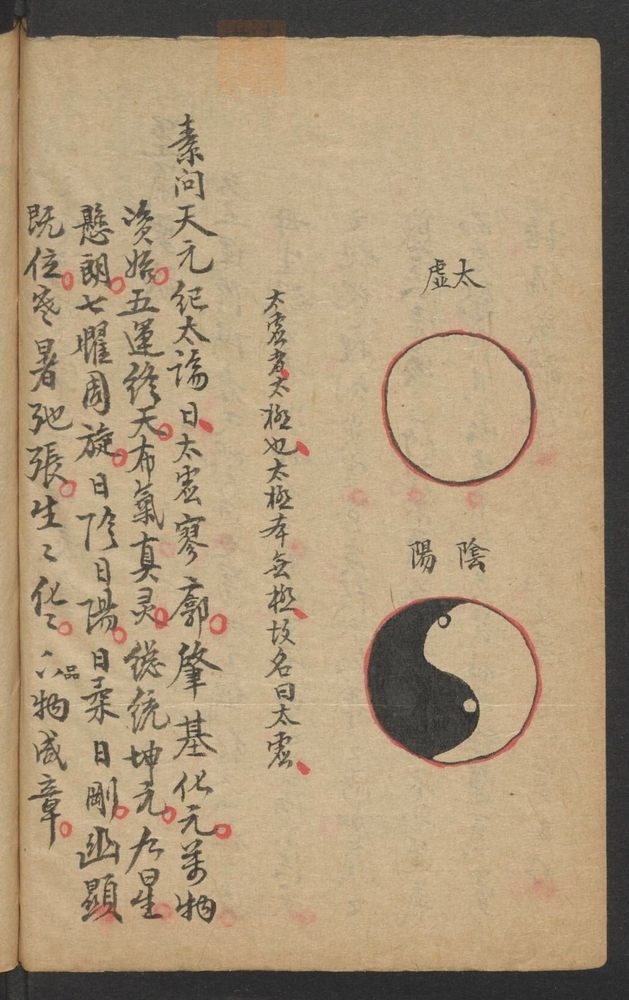 太虛
陰陽
太虛者太極也太極本無極故名曰太虛
素問天元紀太論曰太虛寥廓肇基化元萬物
資始五運終天布氣真灵總統坤元九星
懸朗七曜周旋曰陰曰陽曰柔曰剛幽顯
既位寒暑弛張生〻化〻品物咸章